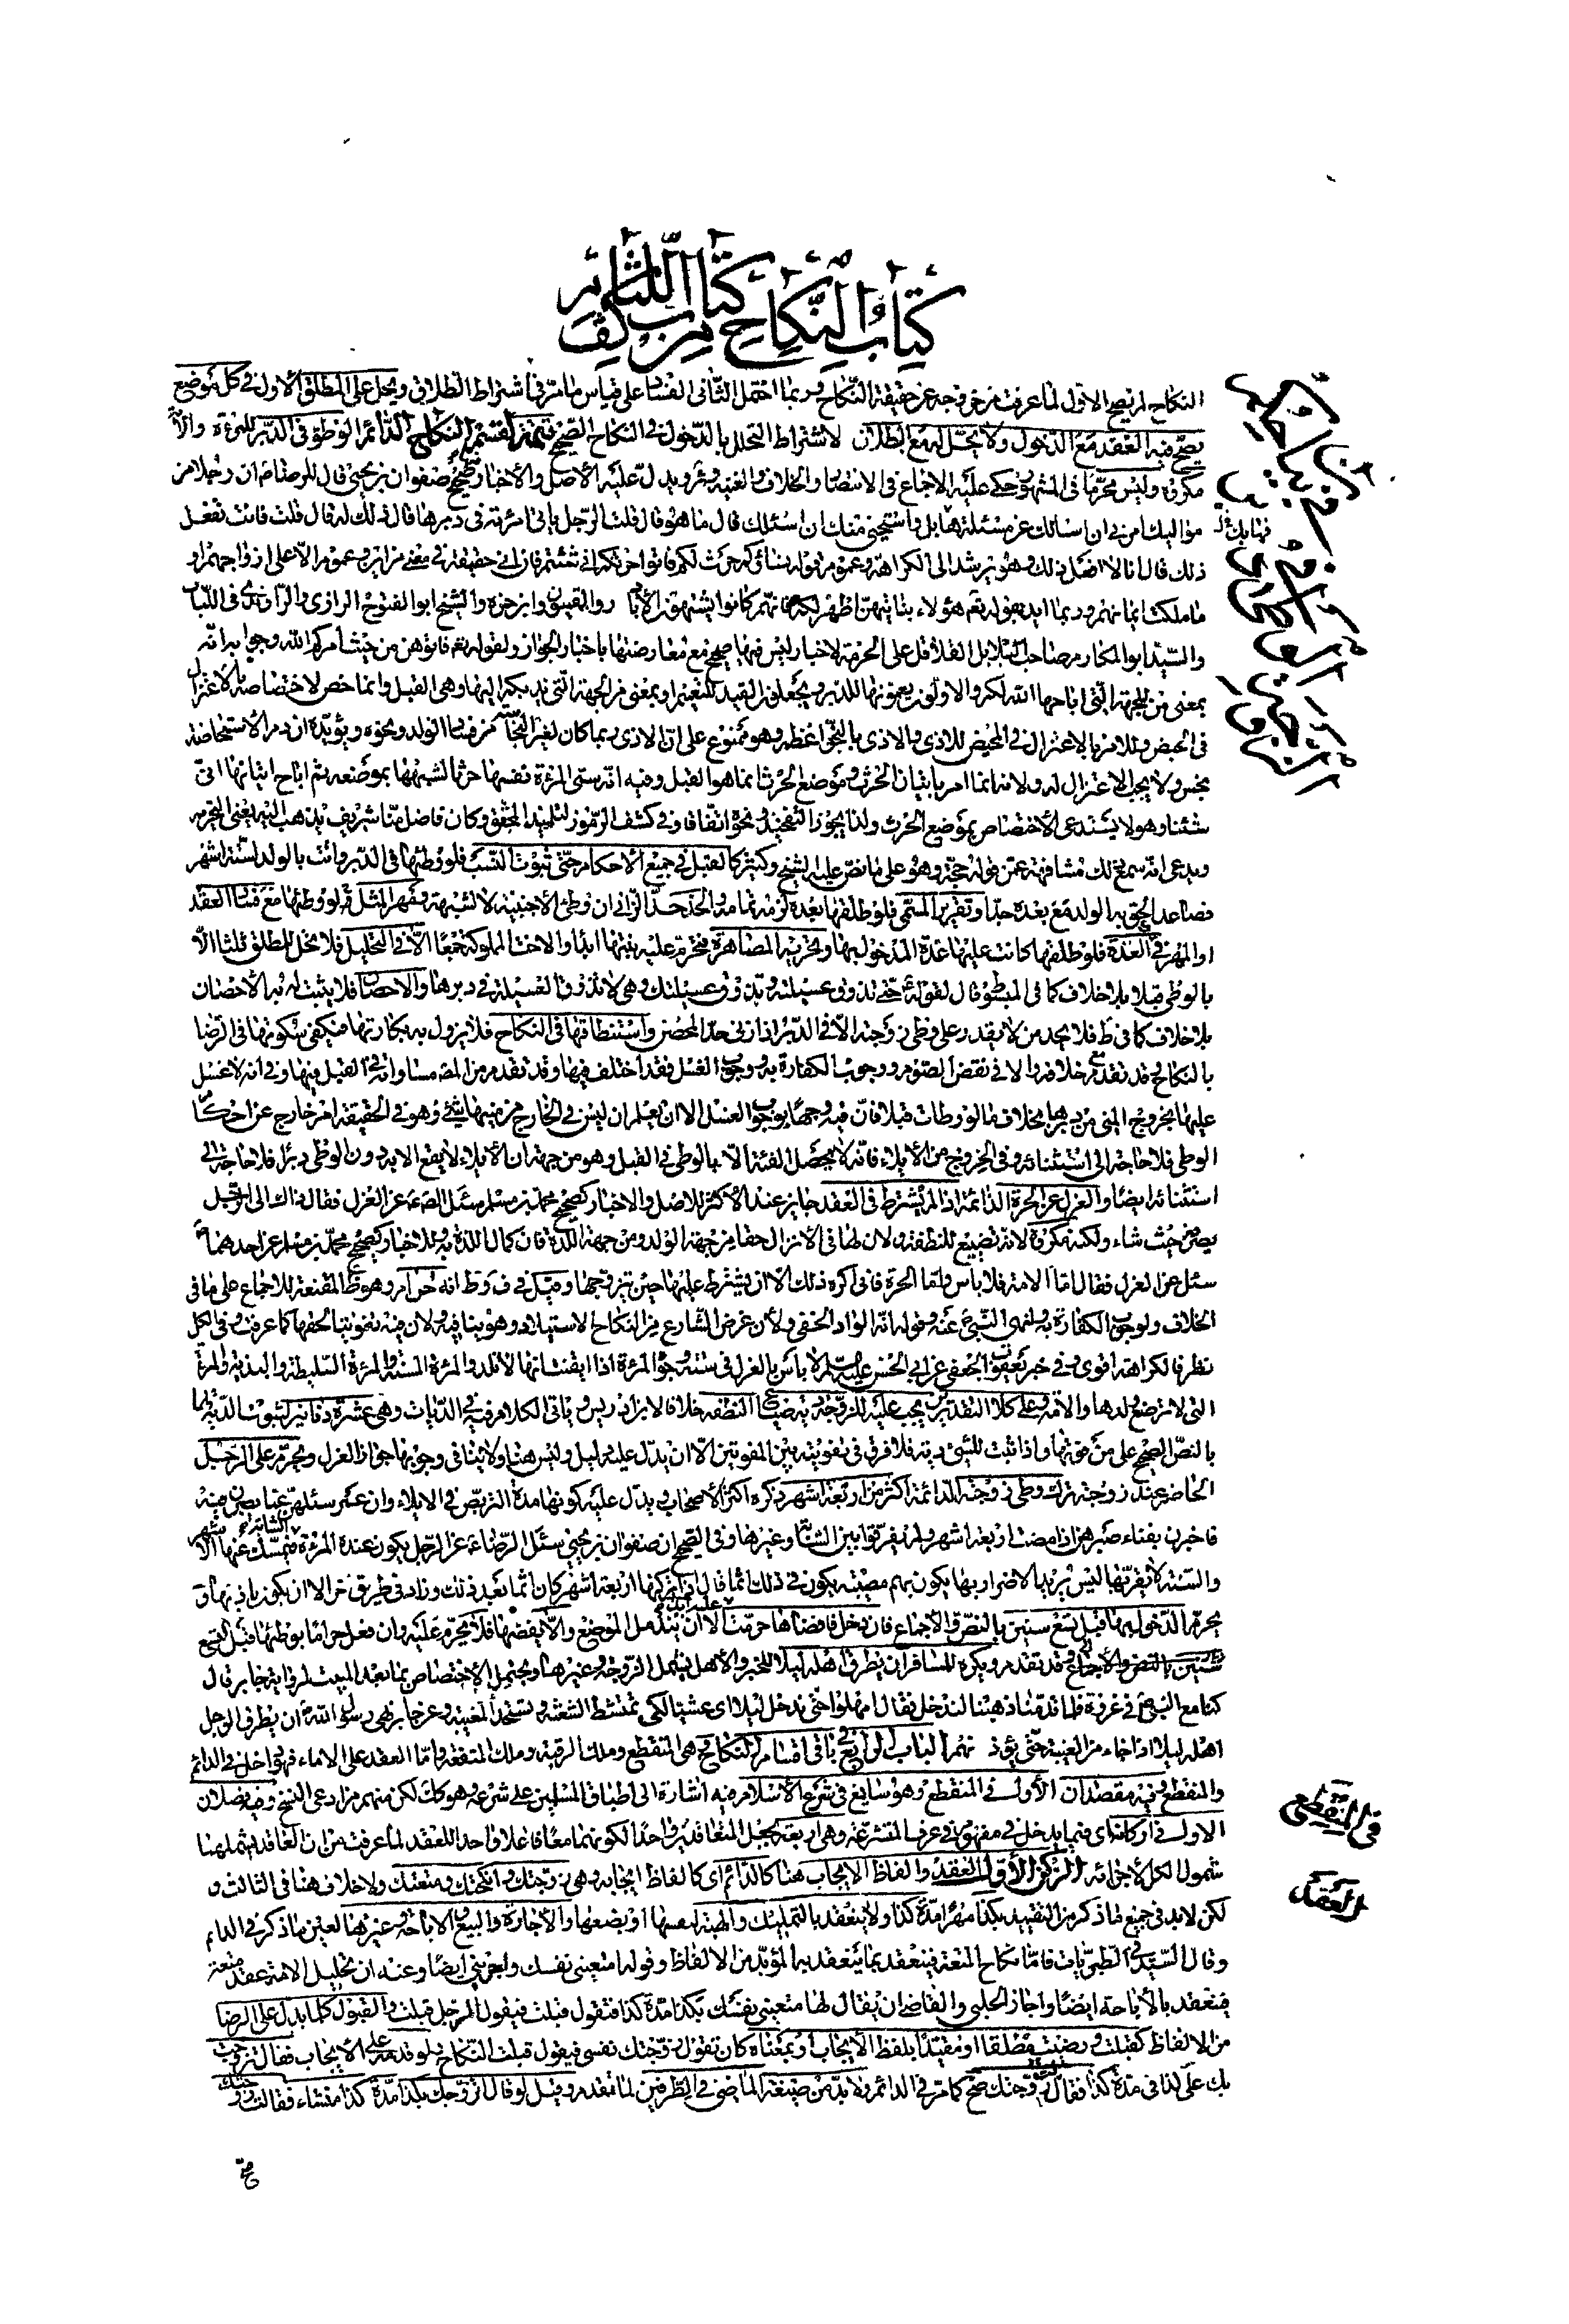 كتاب النكاح من كتاب كشف اللثام
النكاح لم يصح الاول لما عرفت من خروجه عن حقيقة النكاح وربما احتمل الثاني الفساد على قياس ما مر في اشتراط الطلاق ويحل على المطلق الاول في كل موضع
يصح فيه العقد مع الدخول ولا يحل له مع البطلان لاشتراط التحلل بالدخول في النكاح الصحيح تتمة لقسم النكاح الدائم الوطؤ في الدبر للمرءة والا
مكروه وليس محرما في المشهور وحكي عليه الاجماع في الانتصار والخلاف والغنية وئر ويدل عليه الاصل والاخبار كصحيح صفوان بن يحيى قال للرضا ع ان رجلا من
مواليك امرني ان اسالك عن مسئلة هابك واستحيى منك ان اسئلك قال ما هو قال قلت الرجل ياتى امرئته في دبرها قال ذلك له قال قلت فانت تفعل
ذلك قال انا لا افعل ذلك وهو يرشد الى الكراهة وعموم قوله نساؤكم حرث لكم فاتوا حرثكم انى شئتم فان انى حقيقة في معنى من اين وعموم الا على ازواجهم او
ما ملكت ايمانهم وربما ايد بقوله تعم هؤلاء بناتي هن اطهر لكم فانهم كانوا يشتهون الادبار والقميون وابن حمزة والشيخ ابو الفتوح الرازي والراوندي في اللباب
والسيد ابو المكارم صاحب البلابل القلاقل على الحرمة لاخبار ليس فيها صحيح مع معارضتها باخبار الجواز ولقوله تعم فاتوهن من حيث امركم الله وجوابه انه
بمعنى من الجهة التي اباحها الله لكم والاولون يعمونها للدبر
في الحيض وللامر بالاعتزال في المحيض للاذى والاذى بالنجو اعظم وهو ممنوع على ان الاذى ربما كان لغير النجاسة من فساد الولد ونحوه ويؤيده ان دم الاستحاضة
نجس ولا يجب الاعتزال له ولانه انما امر باتيان الحرث وموضع الحرث انما هو القبل وفيه انه سمى المرءة نفسها حرثا لشبهها بموضعه ثم اباح اتيانها انى
شئنا وهو لا يستدعي الاختصاص بموضع الحرث ولذا يجوز التفخيذ ونحوه اتفاقا وفي كشف الرموز لتلميذ المحقق وكان فاضل منا شريف يذهب اليه يعنى التحريم
ويدعى انه سمع ذلك مشافهة عمن قوله حجة وهو على ما نص عليه الشيخ وكثير كالقبل في جميع الاحكام حتى ثبوت النسب فلو وطئها في الدبر واتت بالولد لستة اشهر
فصاعدا لحق به الولد مع بعده جدا وتقرير المسمى فلو طلقها بعده لزمه تمامه والحد حد الزاني ان وطئ الاجنبية لا لشبهة ومهر المثل لو وطئها مع فساد العقد
او المهر في العدة فلو طلقها كانت عليها عدة المدخول بها وتحريم المصاهرة فتحرم عليه بنتها ابدا والاخت المملوكة جمعا الا في التحليل فلا تحل للمطلق ثلثا الا
بالوطي قبلا بلا خلاف كما في المبسوط قال لقوله ع حتى تذوقي عسيلته ويذوق عسيلتك وهي لا تذوق العسيلة في دبرها والاحصان فلا يثبت له به الاحصان
بلا خلاف كما في ط فلا يحد من لا يقدر على وطئ زوجته الا في الدبر اذا زنى حد المحصن واستنطاقها في النكاح فلا يزول به بكارتها فيكفى سكوتها في الرضا
بالنكاح
عليها بخروج المنى من دبرها بخلاف ما لو وطات قبلا فان فيه وجها بوجوب الغسل الا ان يعلم ان ليس في الخارج من منيها شئ وهو في الحقيقة امر خارج عن احكام
الوطى فلا حاجة الى استثنائه وفي الخروج من الايلاء فانه لا يحصل الفئة الا بالوطى في القبل وهو من جهة ان الايلاء لا يقع الا به دون الوطى دبرا فلا حاجة الى
استثنائه ايضا والعزل عن الحرة الدائمة اذا لم يشترط في العقد جايز عند الاكثر للاصل والاخبار كصحيح محمد بن مسلم سئل الص ع عن العزل فقال ذاك الى الرجل
يصرفه حيث شاء ولكنه مكروه لانه تضييع للنطفة ولان لها في الانزال حقا من جهة الولد ومن جهة اللذة فان كمال اللذة به وللاخبار كصحيح محمد بن مسلم عن احدهما ع
سئل عن العزل فقال اما الامة فلا باس واما الحرة فانى اكره ذلك الا ان يشترط عليها حين تزوجها وقيل في ف وط انه حرام وهو ظ المقنعة للاجماع على ما في
الخلاف ولوجوب الكفارة به ولنهى النبي ص عنه وقوله انه الواد الخفى ولان غرض الشارع من النكاح الاستيلاد وهو ينافيه ولان فيه تفويتا لحقها كما عرفت وفي الكل
نظر فالكراهة اقوى وفي خبر يعقوب الجعفي عن ابي الحسن عليه السلم لا باس بالعزل في ستة وجوه المرءة اذا ايقنت انها لا تلد والمرءة المسنة والمرءة السليطة والبذية والمرءة
التي لا ترضع ولدها والامة وعلى كلا التقديرين يجب عليه للزوجة دية ضياع النطفة خلافا لابن ادريس وياتى الكلام فيه في الديات وهي عشرة دنانير لثبوت الدية بها
بالنص الصحيح على من فوتها واذا ثبت للشئ دية فلا فرق في تفويته بين المفوتين الا ان يدل عليه دليل وليس هنا ولا ينافى وجوبها جواز العزل ويحرم على الرجل
الحاضر عند زوجته ترك وطى زوجته الدائمة اكثر من اربعة اشهر ذكره اكثر الاصحاب ويدل عليه كونها مدة التربص في الايلاء وان عمر سئلهن عما يصبرن فيه
فاخبرن بفناء صبرهن اذا مضت اربعة اشهر ولم يفرقوا بين الشابة وغيرها وفي الصحيح ان صفوان بن يحيى سئل الرضا ع عن الرجل يكون عنده المرءة الشابة فيمسك عنها الاشهر
والسنة لا يقربها ليس يريد الاضرار بها يكون بهم مصيبة يكون في ذلك اثما قال اذا تركها اربعة اشهر كان اثما بعد ذلك وزاد في طريق اخر الا ان يكون باذنها و
يحرم الدخول بها قبل تسع سنين بالنص والاجماع فان دخل فافضاها حرمت عليه ابدا الا ان يندمل الموضع والا يفضها فلا تحرم عليه وان فعل حراما بوطئها قبل التسع
سنين بالنص والاجماع وقد تقدم ويكره للمسافر ان يطرق اهله ليلا للخبر والاهل فيشمل الزوجة وغيرها ويحتمل الاختصاص بها بعد المبيت لرواية جابر قال
كنا مع النبي ص في غزوة فلما قدمنا ذهبنا لندخل فقال امهلوا حتى ندخل ليلا اى عشيا لكى تمتشط الشعثة وتستحد المغيبة وعن جابر نهى رسول الله ص ان يطرق الرجل
اهله ليلا اذا جاء من الغيبة حتى يؤذنهم الباب الرابع في باقي اقسام النكاح وهى المنقطع وملك الرقبة وملك المنفعة واما العقد على الاماء فهو داخل في الدائم
والمنقطع وفيه مقصدان الاول في المنقطع وهو سايغ في شرع الاسلام فيه اشارة الى اطباق المسلمين على شرعه وهو كك لكن منهم من ادعى النسخ وفيه فصلان
الاول في اركانه اى فيما يدخل في مفهومه في عرف المتشرعة وهى اربعة بجعل المتعاقدين واحدا لكونهما معا فاعلا واحدا للعقد لما عرفت من ان العاقد يشملهما
شمول الكل لاجزائه الركن الاول العقد والفاظ الايجاب هنا كالدائم اى كالفاظ ايجابه وهى زوجتك وانكحتك ومتعتك ولا خلاف هنا في الثالث و
لكن لا بد في جميع ما ذكر من التقييد بكذا مهرا مدة كذا ولا ينعقد بالتمليك والهبة لنفسها او بضعها والاجارة والبيع والاباحة وغيرها لعين ما ذكر في الدائم
وقال السيد في الطبريات فاما نكاح المتعة فينعقد بما ينعقد به المؤبد من الالفاظ وقوله امتعينى نفسك واجرينى ايضا وعنه ان تحليل الامة عقد متعة
فينعقد بالاباحة ايضا واجاز الحلبي والقاضى ان يقال لها متعينى نفسك بكذا مدة كذا فتقول قبلت فيقول الرجل قبلت والقبول كلما يدل على الرضا
من الالفاظ كقبلت ورضيت مطلقا او مقيدا بلفظ الايجاب او بمعناه كان تقول زوجتك نفسى فيقول قبلت النكاح ولو قدمه على الايجاب فقال تزوجت
بك على كذا في مدة كذا فقال زوجتك صح كما مر في الدائم ولا بد من صيغة الماضى في الطرفين لما تقدم وقيل لو قال اتزوجك بكذا مدة كذا منشاء فقالت زوجتك
في المنقطع
في العقد